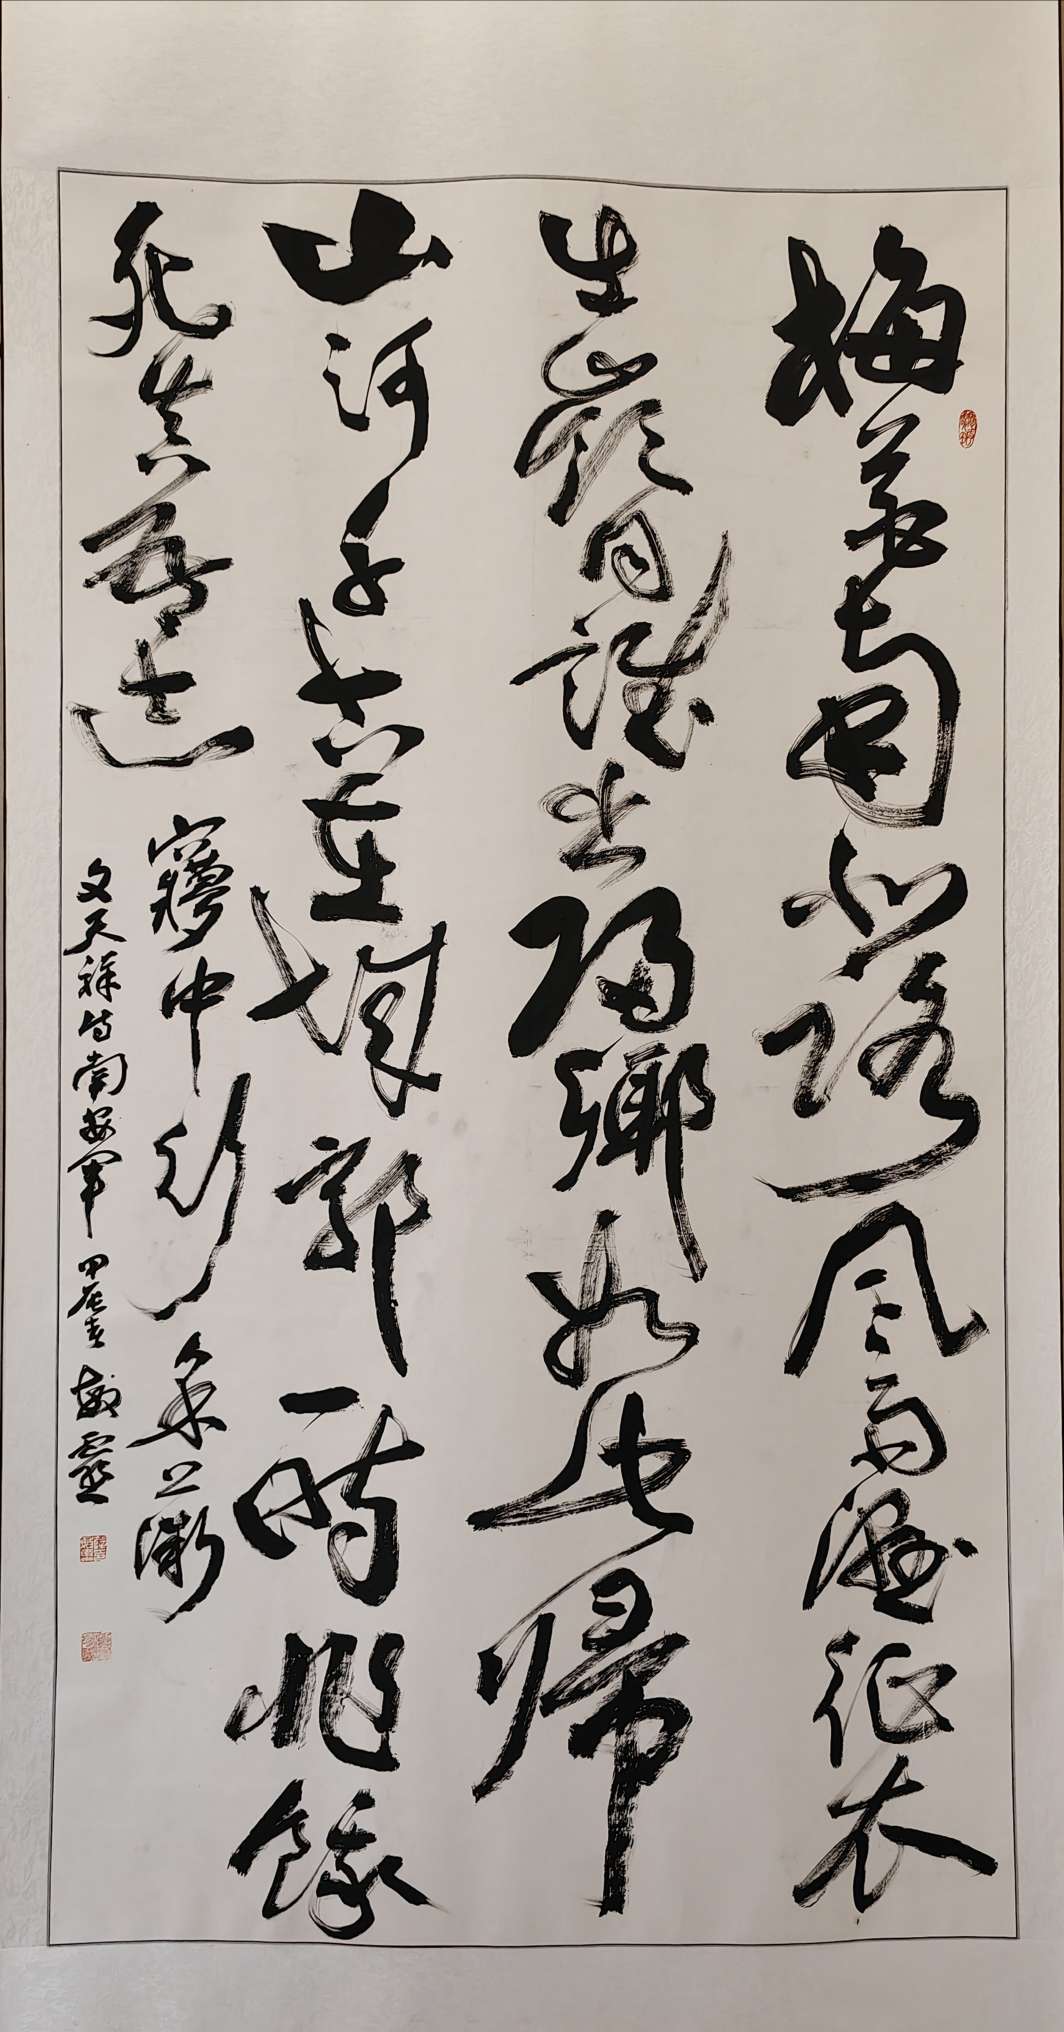 梅花南北路風雨濕征衣
出嶺同誰出歸鄉如此歸
山河千古在城郭一時非餓
死真吾志夢中行采薇
文天祥詩南安軍甲辰春